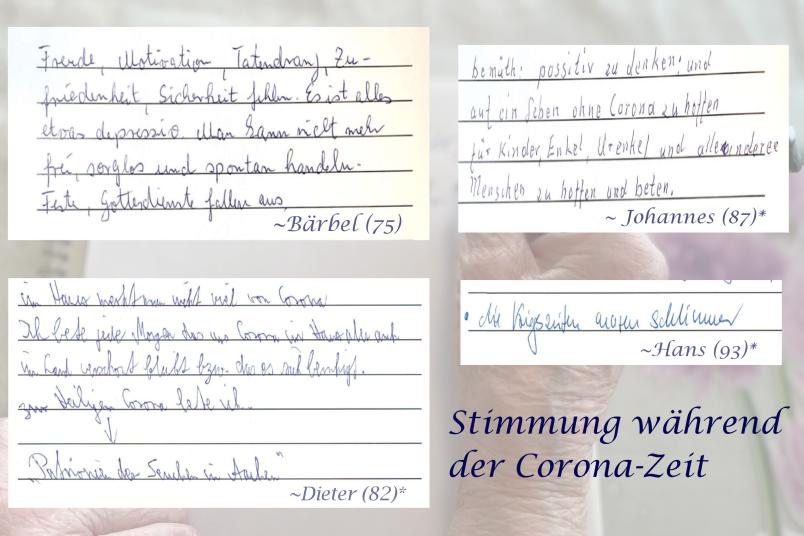 Freude, Motivation, Tatendrang, Zu-
friedenheit, Sicherheit fehlen. Es ist alles
etwas depressiv. Man kann nicht mehr
frei, sorglos und spontan handeln.
Feste, Gottesdienste fallen aus.
~Bärbel (75)
bemüht: possitiv zu denken; und
auf ein Leben ohne Corona zu hoffen
für Kinder, Enkel, Urenkel und alle anderee
Menschen zu hoffen und beten.
~ Johannes (87)*
im Haus merkt man nicht viel von Corona
Ich bete jede Morgen das uns Corona im Haus aber auch
im Land verschont bleibt bzw. das es sich beruhigt.
zur Heiligen Corona bete ich.
↓
"Patronin der Seuchen in Aachen"
~Dieter (82)*
• die Kriegszeiten waren schlimmer
~Hans (93)*
Stimmung während
der Corona-Zeit